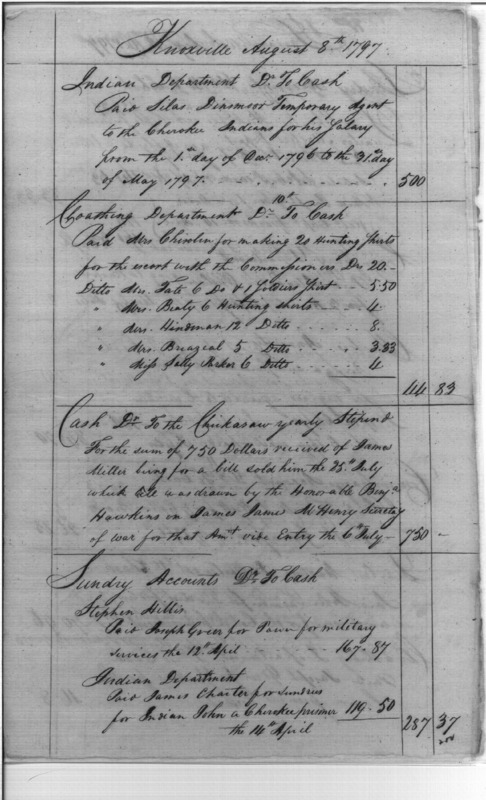 Knoxville August 8th 1797
Indian Department Dr. To Cash
Paid Silas Dinsmoor Temporary Agent
to the Cherokee Indians for his Salary
from the 1st day of Decr. 1796 to the 31st day
of May 1797. 500
10th
Cloathing Department Dr. To Cash
Paid Mrs Chisolm for making 20 Hunting Shirts
for the escort with the Commissioners Drs 20.-
Ditto Mrs. Tate 6 Do & 1 Soldiers Shirt 5.50
" Mrs. Beaty 6 Hunting shirts 4.
" Mrs. Hindman 12 Ditto 8.
" Mrs. Breazeal 5 Ditto 3.33
" Miss Sally Parker 6 Ditto 4
44 83
Cash Dr. To the Chickasaw yearly Stepend
For the sum of 750 Dollars received of James
Miller being for a bill sold him the 25th July
which was drawn by the Honorable Benja.
Hawkins on James James McHenry Secretary
of war for that Amt. vide Entry the 6th July - 750 -
Sundry Accounts Dr. To Cash
Stephen Hillis
Paid Joseph Greer for Pawn for military
services the 12th April 167.87
Indian Department
Paid James Charter for Sundries
for Indian John a Cherokee prisoner 119.50
the 14th April 287 37